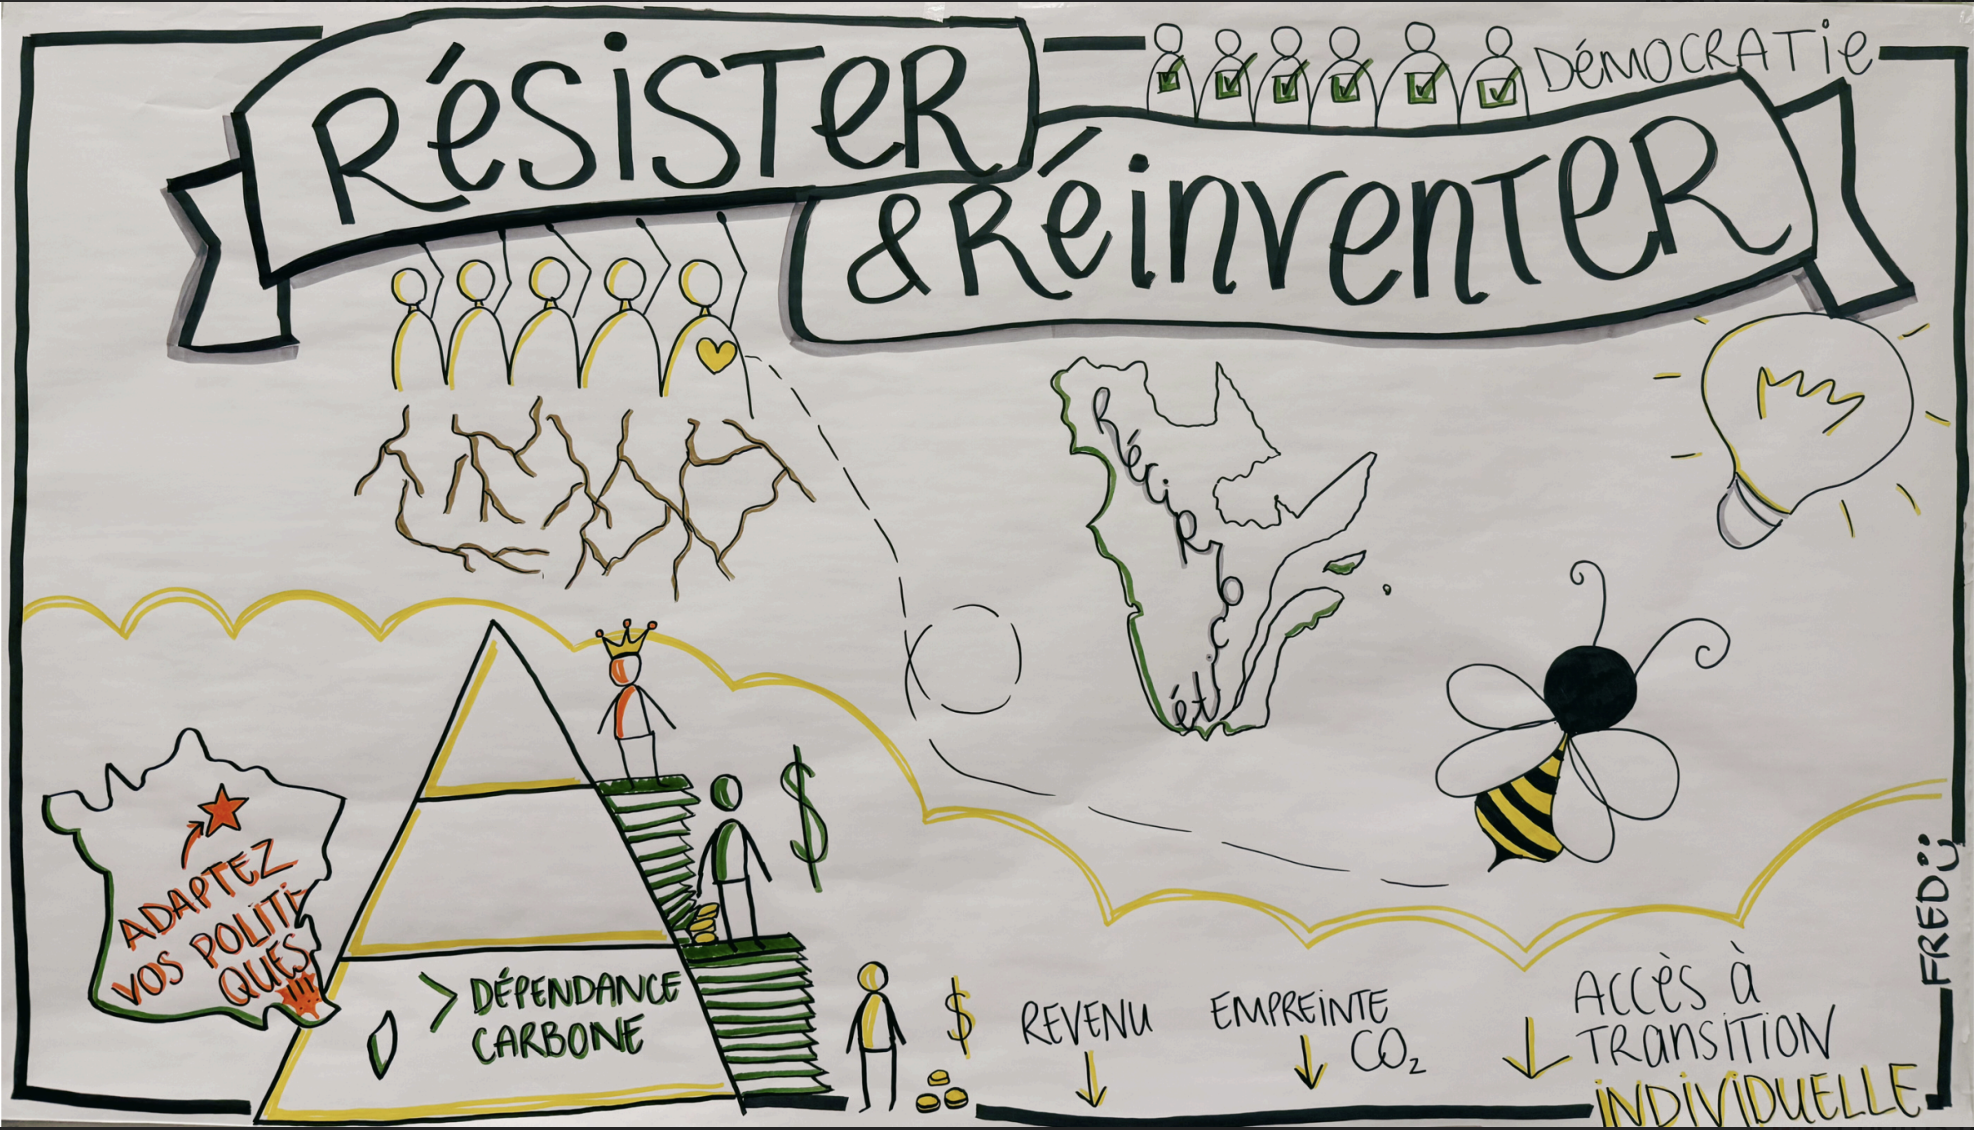 RÉSISTER
DÉMOCRATIE
& RÉINVENTER
Réciprocité
ADAPTEZ
VOS POLITI
QUES
> DÉPENDANCE
CARBONE
$
$
REVENU
EMPREINTE
CO₂
ACCÈS À
TRANSITION
INDIVIDUELLE
FRED